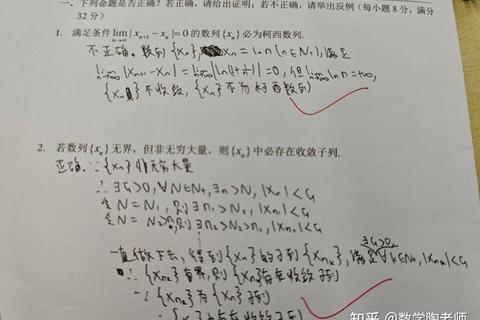 一、下列命题是否正确?若正确,请给出证明;若不正确,请举出反例(每小题 8 分,满分
32 分)
1. 满足条件 lim_{n→∞}|x_{n+1}−x_n|=0 的数列{x_n}必为柯西数列.
不正确。数列{x_n}, x_n=ln n(n∈N₊),满足
lim_{n→∞}|x_{n+1}−x_n|=lim_{n→∞}|ln(1+1/n)|=0,但lim_{n→∞}ln n=+∞,
{x_n}不收敛,{x_n}不为柯西数列
2. 若数列{x_n}无界,但非无穷大量,则{x_n}中必存在收敛子列.
正确。∵{x_n}非无穷大量
∴∃G>0,∀N∈N₊,∃n>N,|x_n|<G
N=N₁,则∃n₁>N₁,|x_{n₁}|<G
N=N₂ 则∃n₂>N₂>n₁,|x_{n₂}|<G
一直做下去,得到{x_n}的子列{x_{n_k}},满足∃G>0,∀k∈N₊,|x_{n_k}|<G
∴{x_{n_k}}有界,则{x_{n_k}}存在收敛子列
∵{x_{n_k}}为{x_n}子列
{x_n}存在收敛子列
知乎 @数学陶老师